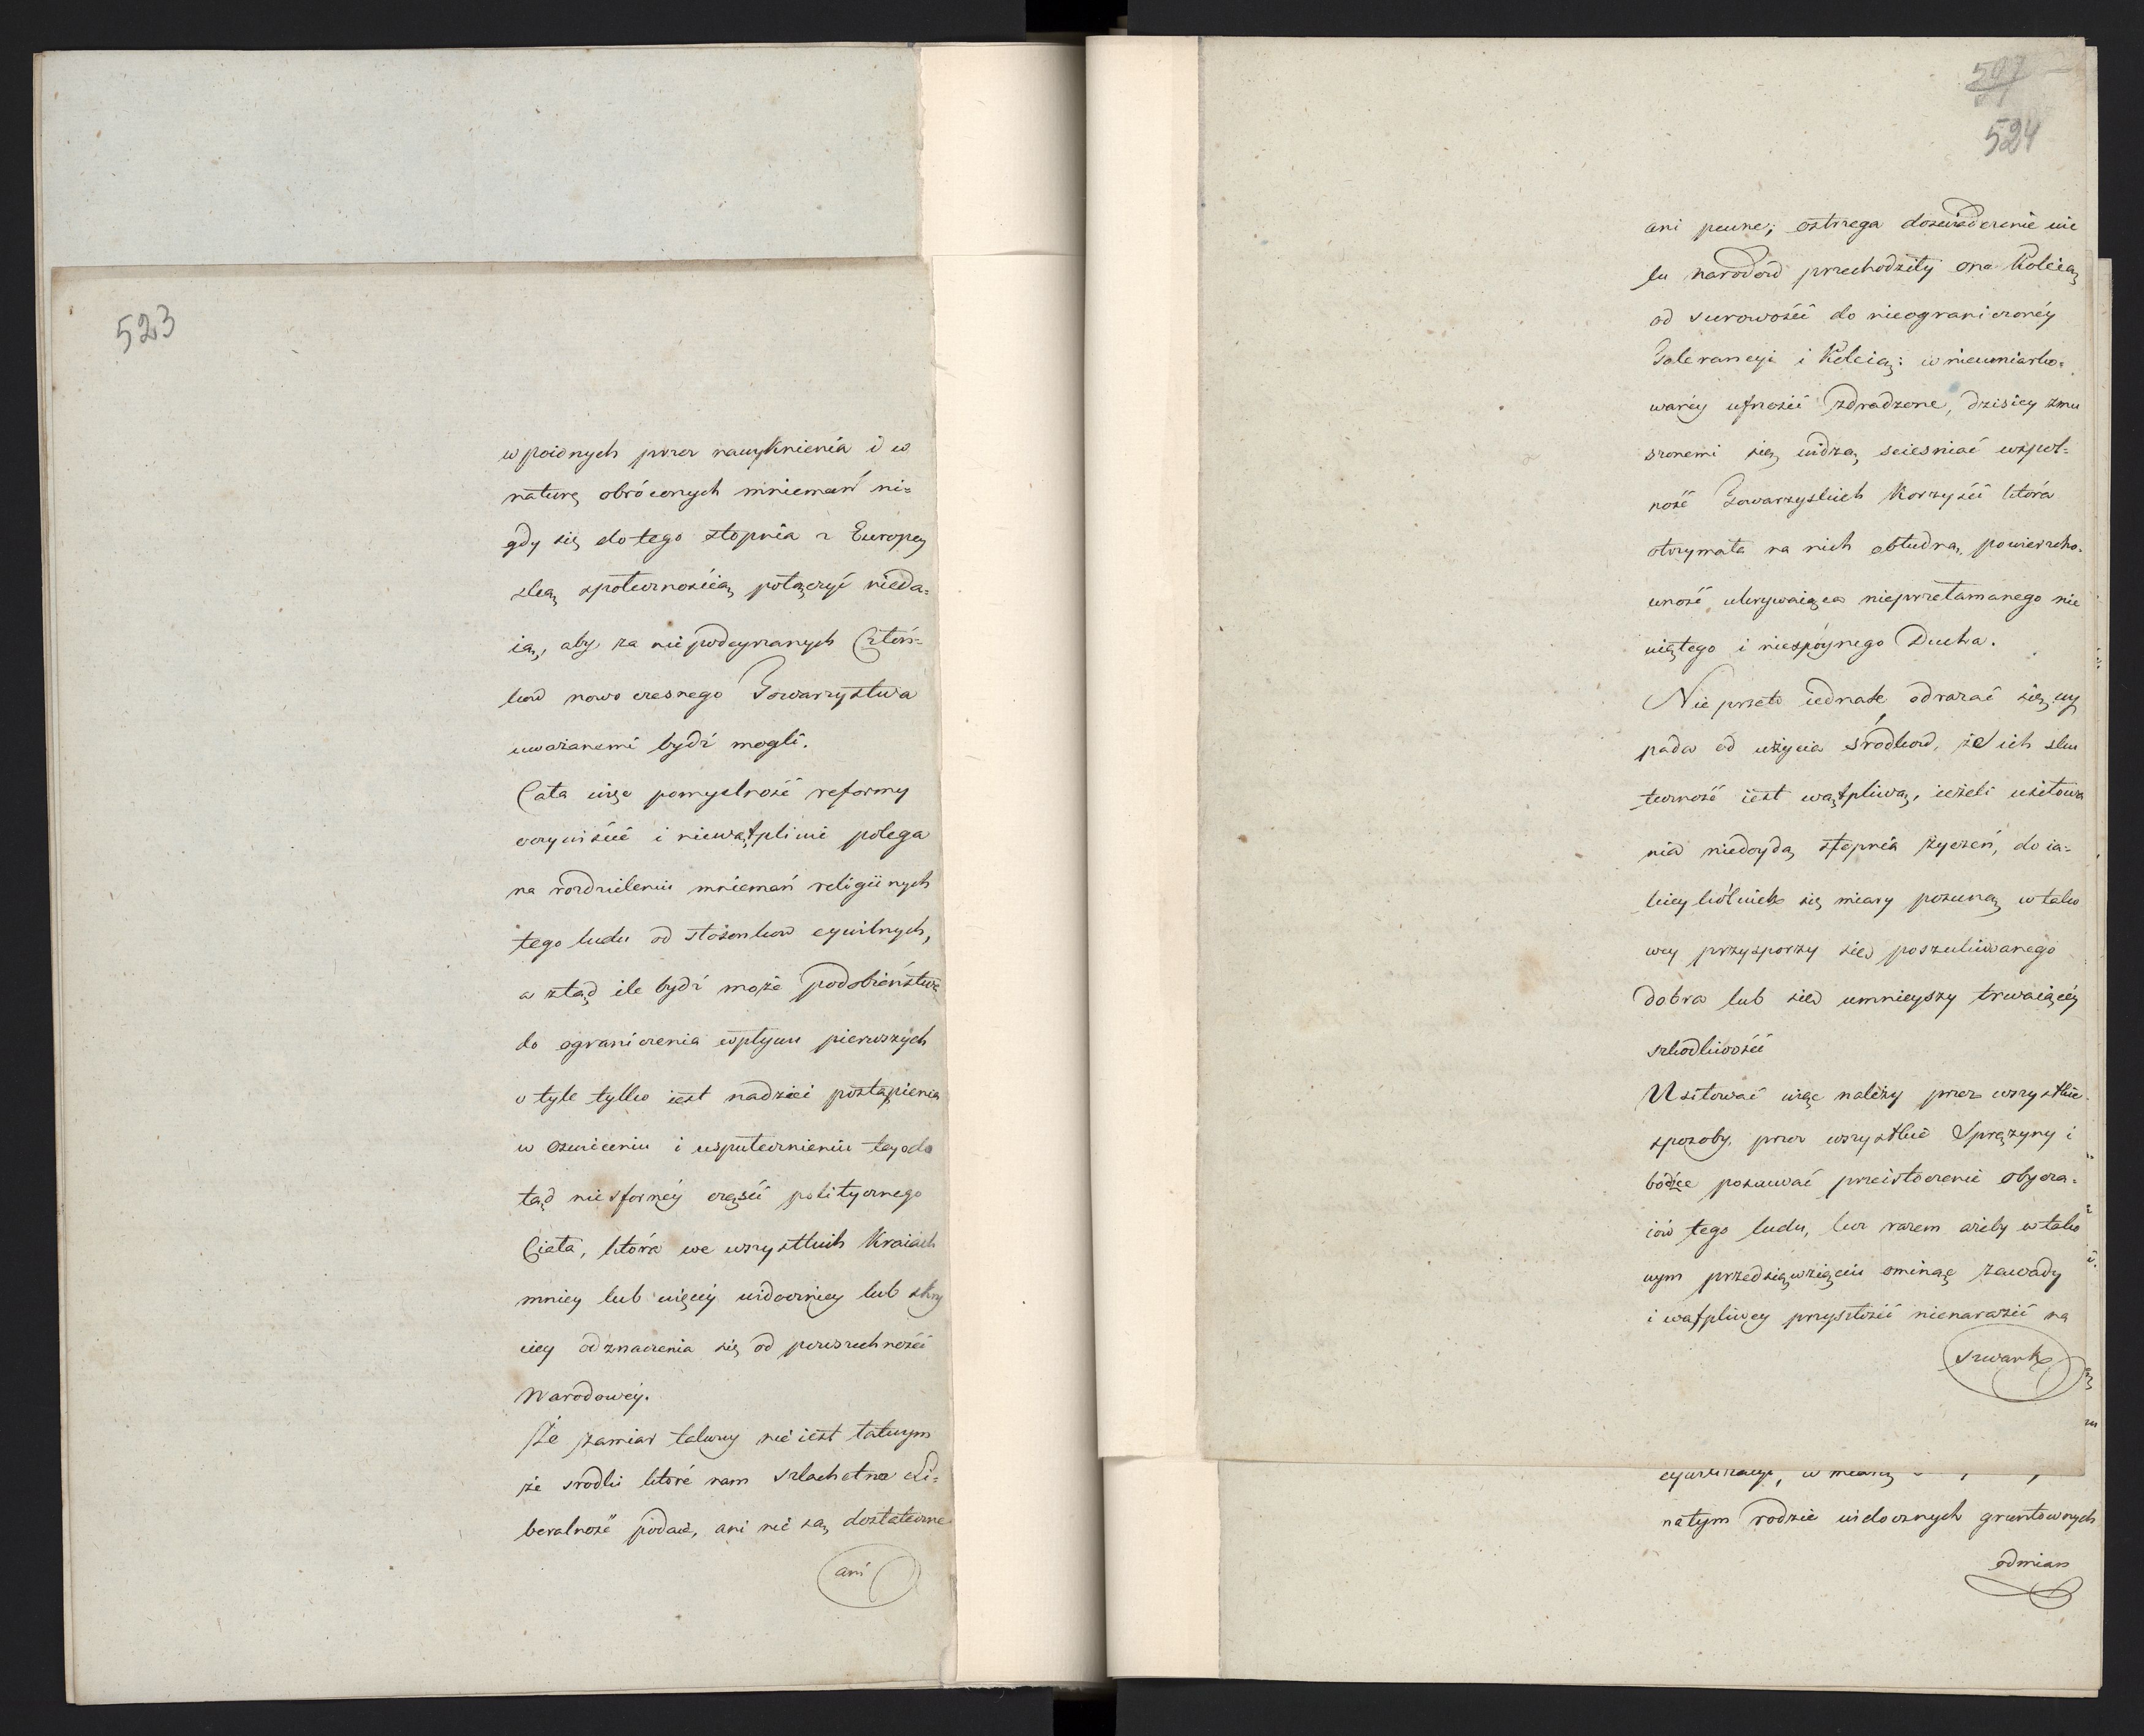 523
wpoionych przez nawyknienia i w
naturę obróconych mniemań ni=
gdy się do tego stopnia z Europey
ską społecznością połączyć nieda=
ią, aby za nie podeyrzanych Człon=
ków nowo czesnego Towarzystwa
uważanemi bydź mogli.
Cała więc pomyslność reformy
oczywiście i niewątpliwie polega
na rozdzieleniu mniemań religiinych
tego ludu od stosonkow cywilnych,
a ztąd ile bydź może podobieństwa
do ograniczenia wpływu pierwszych
o tyle tylko iest nadziei postąpienia
w oswieceniu i uspołecznieniu tey do
tąd niesforney części politycznego
Ciała, która we wszystkich Kraiach
mniey lub więcey widoczniey lub skry
ciey odznaczenia się od powszechności
Narodowey.
Że zamiar takowy nie iest łatwym
że srodki które nam szlachetna Li=
beralność podaie, ani nie są dostateczne
ani
524
ani pewne; ostrzega doswiadczenie wie
lu narodów przechodziły one Koleią
od surowości do nieograniczoney
Tolerancyi i Koleią: w nieumiarko=
waney ufności zdradzone, dzisiey zmu
szonemi się widzą sciesniać wspól=
ność Towarzyskich Korzyści która
otrzymała na nich obłudną powierzcho=
wność ukrywaiącą nieprzełamanego nie
ugiętego i niespóynego Ducha.
Nie przeto iednak odrazać się wy
pada od użycia środkow, że ich sku
teczność iest wątpliwą, ieżeli usiłowa
nia niedoydą stopnia życzeń, do ia=
kiey kolwiek się miary posuną w tako
wey przysporzy się poszukiwanego
dobra lub się umnieyszy trwaiącéy
szkodliwości
Usiłować więc należy przez wszystkie
sposoby, przez wszystkie Sprężyny i
bódzce posuwać przeistoczenie obycza=
iów tego ludu, lecz razem ażeby w tako
wym przedsięwzięciu ominąć zawady
i wątpliwey przyszłości nienarazić na
szwank
cywilizacyi, w miarę
na tym rodzie widocznych gruntownych
odmian